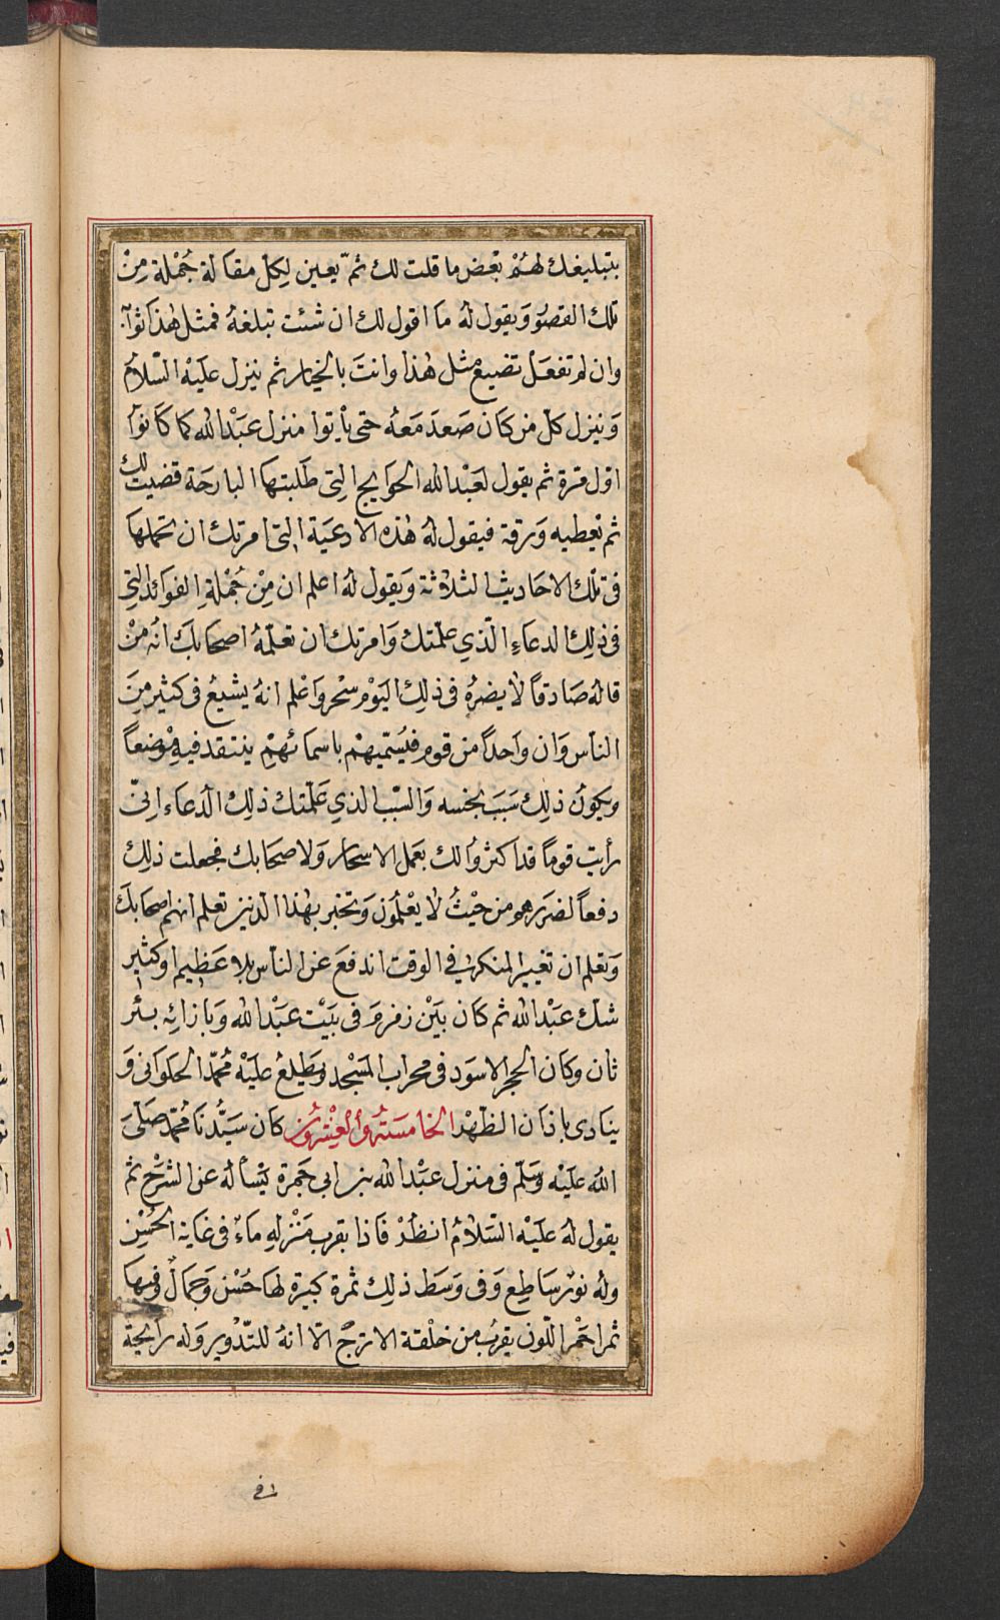 بتبليغك لهُمْ بَعْض ما قلت لك ثمّ يعين لِكل مقالة جُمْلة مِنْ
تلك القصُو وَيقول لهُ مَا اقول لك ان شئت تبلغهُ فمثل هٰذا ثوا
وان لم تفعَل تضيع مثل هٰذا وانتَ بالخيار ثم ينزل عليْه السّلامُ
وَينزل كل من كَان صَعدَ مَعَهُ حتى يأتوا منزل عَبْد الله كما كَانوا
اوّل مَرة ثم يقول لعَبْد الله الحوايج التى طَلبتها البارحَة قضيت لك
ثم تعطيه وَرقة فيقول لهُ هٰذه الادعيَة التى امرتك ان تحملها
فى تلك الاحَاديث الثلاثة وَيقول لهُ اعلم ان مِنْ جُمْلةِ الفوَائد التى
فى ذلِك الدعاءِ الّذي علّمتك وَامرتك ان تعلّمهُ اصحابَك انه مَنْ
قالهُ صَادقاً لا يضرهُ فى ذلِك اليَوْم سحْر وَاعْلم انهُ يشيعُ فى كثير مِنَ
الناس وَان واحداً من قوم فيُسَمّيهمْ باسمائهمْ ينتقد فيهِ مَوْضعاً
وَيكونُ ذلِك سَبَبَ نجسه وَالسّبب الذي عَلّمتك ذلِك الدّعَاء انِّى
رأيت قوماً قد اكثرُوا لك بعَمل الاسحار وَلاصحَابك فجعلت ذلِك
دفعاً لضرَرهم من حَيْثُ لا يَعْلمُون وَتخبر بهٰذا الّذين تعلم انهم اصحابكَ
وَتعلم ان تغيير المنكر فى الوقت اندفعَ عن الناس بلاءٌ عَظيم اوكثير
شك عَبْد الله ثم كان بيْن زمزمَ فى بيْت عَبْد الله وَبازائِه بئر
ثان وكان الحجر الاسود فى محراب المَسْجد وَيَطلعُ عليْه محُمّد الحَلوَانى وَ
ينادى باذان الظهْر الخامسَة وَالعِشْرُون كان سَيّدُنَا مُحمّد صَلّى
اللهُ عليْه وَسَلّم فى منزل عَبْد الله بن ابى جَمرة يَسْألهُ عن الشرْح ثم
يقول لهُ عليْه السّلامُ انظرْ فاذا بقرب مَنْزلهِ ماءٌ فى غَاية الحُسْن
ولهُ نور سَاطِع وَفى وَسَط ذلِك ثمرة كبيرة لها حُسْن وَجمالٌ وفيها
ثمر احْمر اللّون يقربُ من خلْقة الاترجّ الّا انهُ للتّدْوير وَله رايحَة